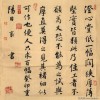 澄心堂紙一幅闊狹厚薄
堅實皆類此乃佳工者不願
為又恐不能為之試與厚直
莫得之見其楮細似可
作也便人只求百幅癸卯重
陽日襄書